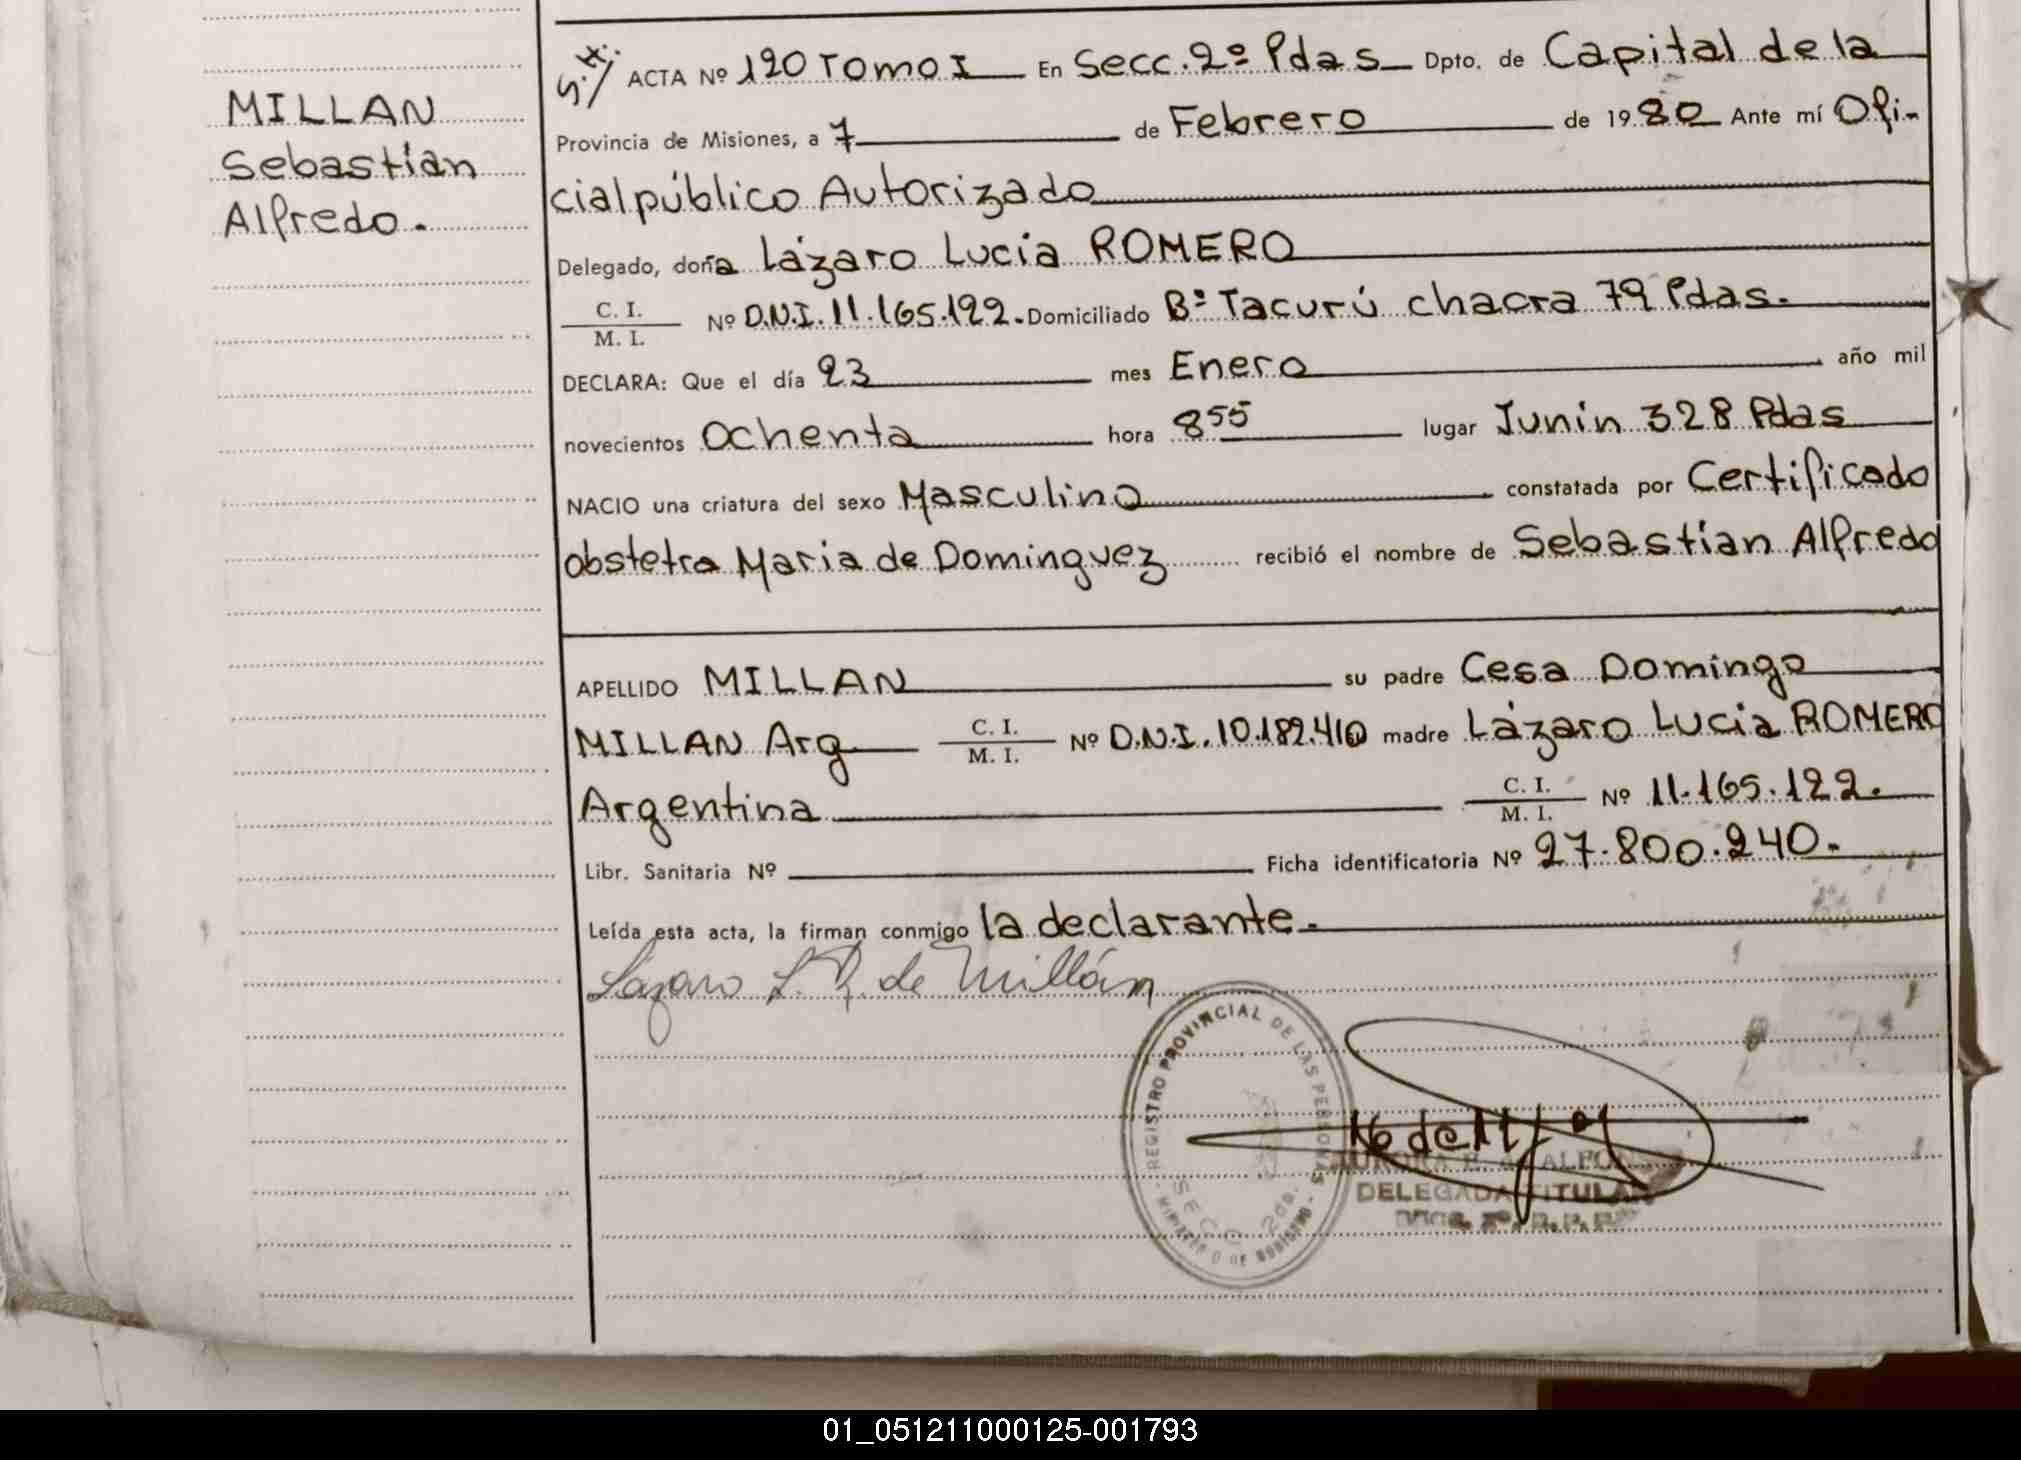 MILLAN
Sebastián
Alfredo.
S/H: ACTA Nº 120 Tomo I En Secc. 2º Pdas Dpto. de Capital de la
Provincia de Misiones, a 7 de Febrero de 1980 Ante mí Ofi-
cial público Autorizado
Delegado, doña Lázaro Lucia ROMERO
C. I.
M. I.
Nº D.N.I. 11.165.122. Domiciliado Bº Tacurú chacra 79 Pdas.
DECLARA: Que el día 23 mes Enero año mil
novecientos Ochenta hora 8 55 lugar Junin 328 Pdas
NACIO una criatura del sexo Masculino constatada por Certificado
obstetra Maria de Dominguez recibió el nombre de Sebastian Alfredo
APELLIDO MILLAN su padre Cesa Domingo
MILLAN Arg C. I. M. I. Nº D.N.I. 10.182.410 madre Lázaro Lucia ROMERO
Argentina C. I. M. I. Nº 11.165.122.
Libr. Sanitaria Nº Ficha identificatoria Nº 27.800.240.
Leída esta acta, la firman conmigo la declarante.
Lázaro L. R. de Millán
REGISTRO PROVINCIAL DE LAS PERSONAS
SECC. 2da.
DELEGADA TITULAR
01_051211000125-001793